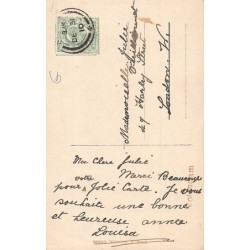 Mademoiselle Julie
47 Harley Street
London W.
Ma Chere Julie
votre Merci Beaucoup
pour Jolie Carte. Je vous
souhaite une bonne
et heureuse année
Louisa